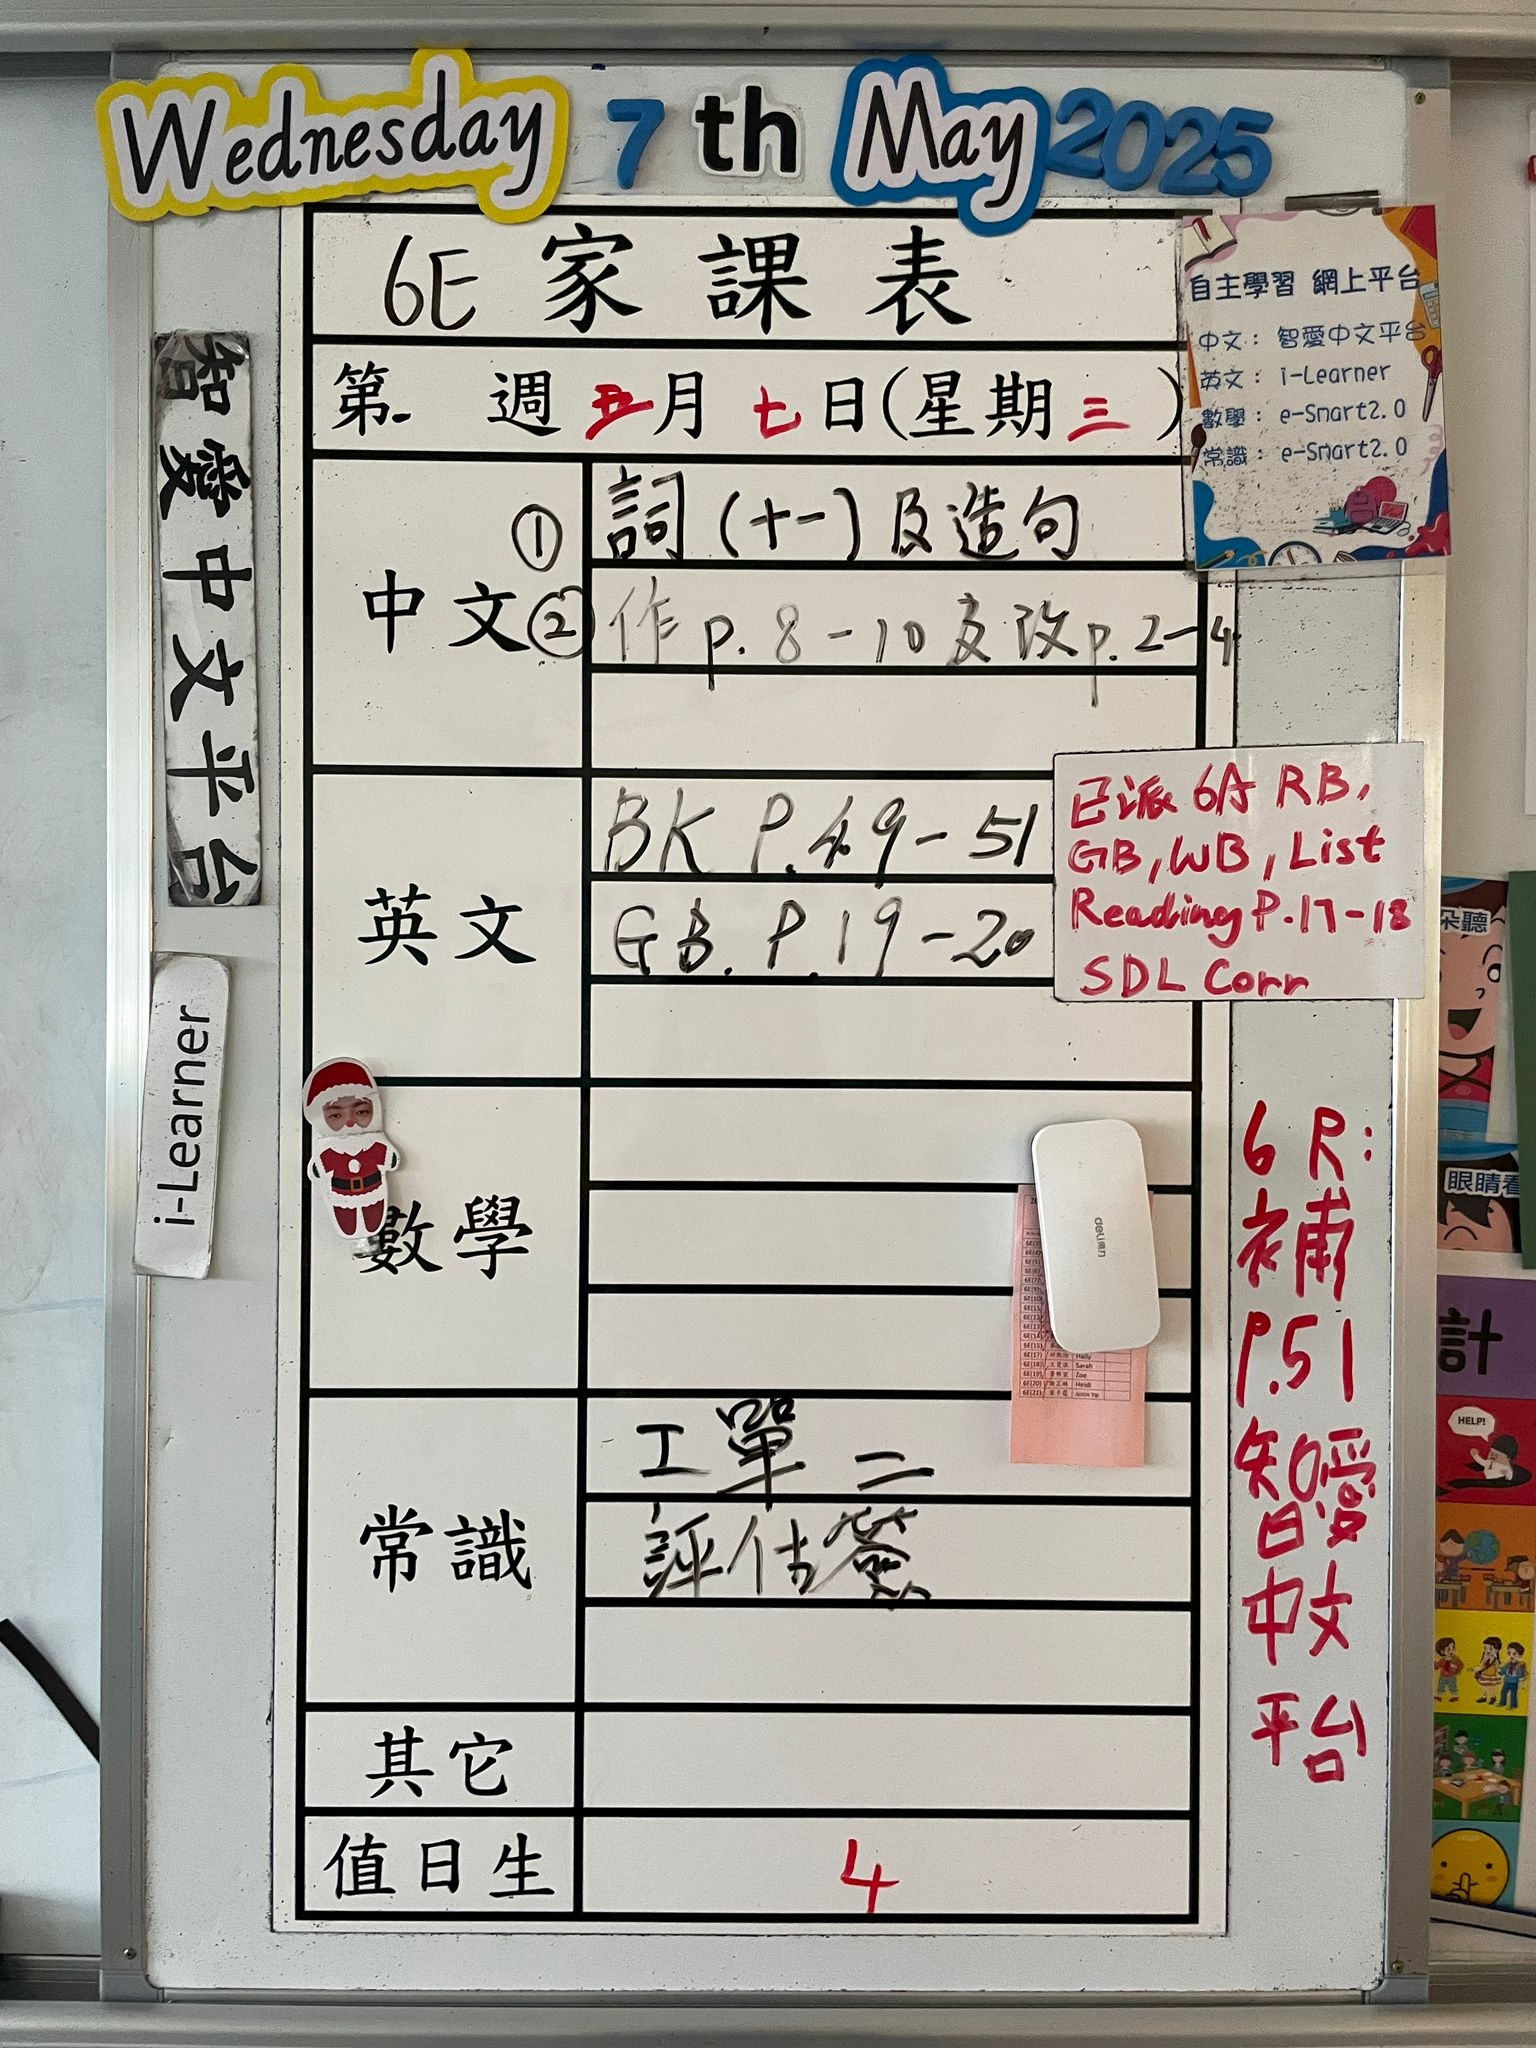 Wednesday 7th May 2025
6E 家課表
第 週 五月七日(星期三)
自主學習 網上平台
中文：智愛中文平台
英文：i-Learner
數學：e-Smart2.0
常識：e-Smart2.0
智愛中文平台
i-Learner
中文
① 詞(十一)及造句
② 作p.8-10及改p.2-4
英文
BK P.49-51
GB. P.19-20
已派 6A RB,
GB, WB, List
Reading P.17-18
SDL Corr
數學
deli得力
6E(17) Haily
6E(18) Sarah
6E(19) Zoe
6E(20) Heidi
6E(21) Justin Yip
常識
工單二
評估簽
其它
值日生
4
6R:
補
P.51
智愛
中文
平台
朵聽
眼睛看
計
HELP!